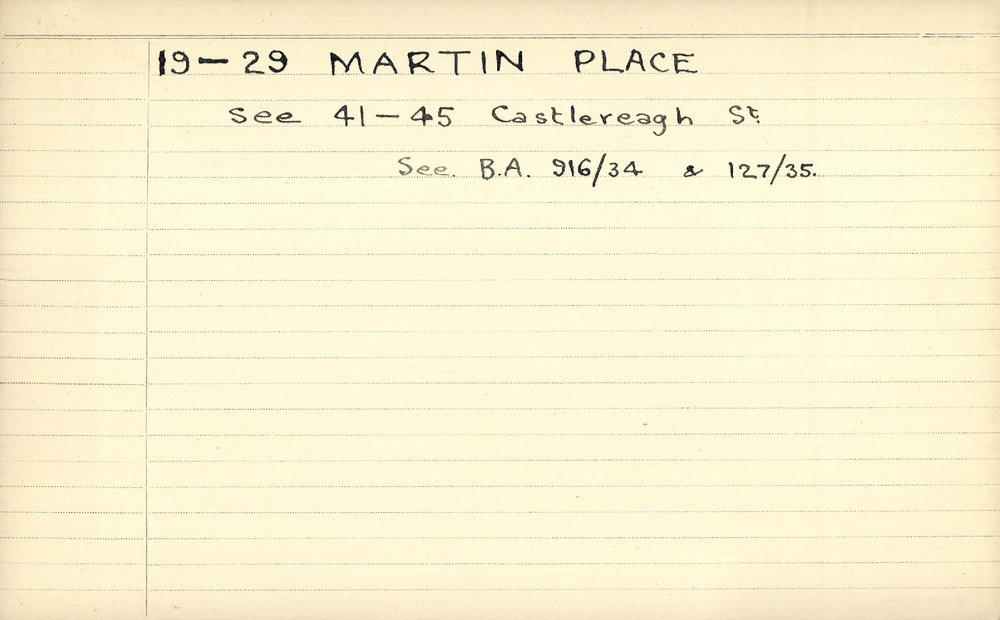 19-29 MARTIN PLACE
See 41-45 Castlereagh St.
See. B.A. 916/34 & 127/35.